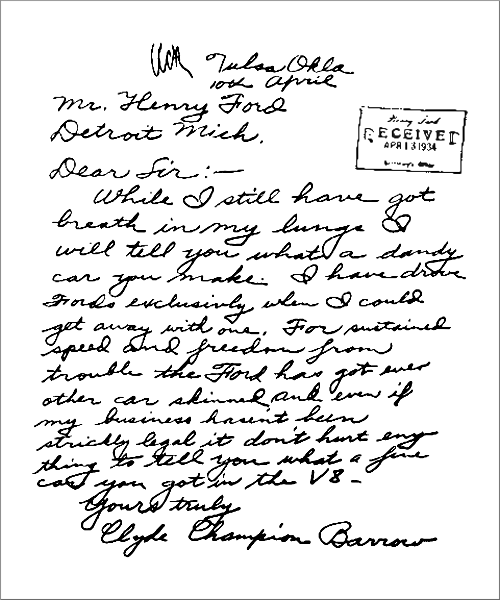 Tulsa Okla
10th April
Mr. Henry Ford
Detroit Mich.
RECEIVED
APR 13 1934
Dear Sir:—
While I still have got
breath in my lungs I
will tell you what a dandy
car you make. I have drove
Fords exclusivly when I could
get away with one. For sustained
speed and freedom from
trouble the Ford has got ever
other car skinned, and even if
my business hasen't been
strickly legal it don't hurt eny
thing to tell you what a fine
car you got in the V8 —
Yours truly
Clyde Champion Barrow